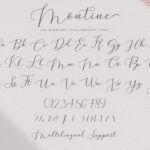 Montine
AN ELEGANT CALLIGRAPHY FONT
Aa Bb Cc Dd Ee Ff Gg Hh
Ii Kk Ll Mm Nn Oo Pp Qq
Rr Ss Tt Uu Vv Ww Xx Yy Zz
0123456789
Multilingual Support